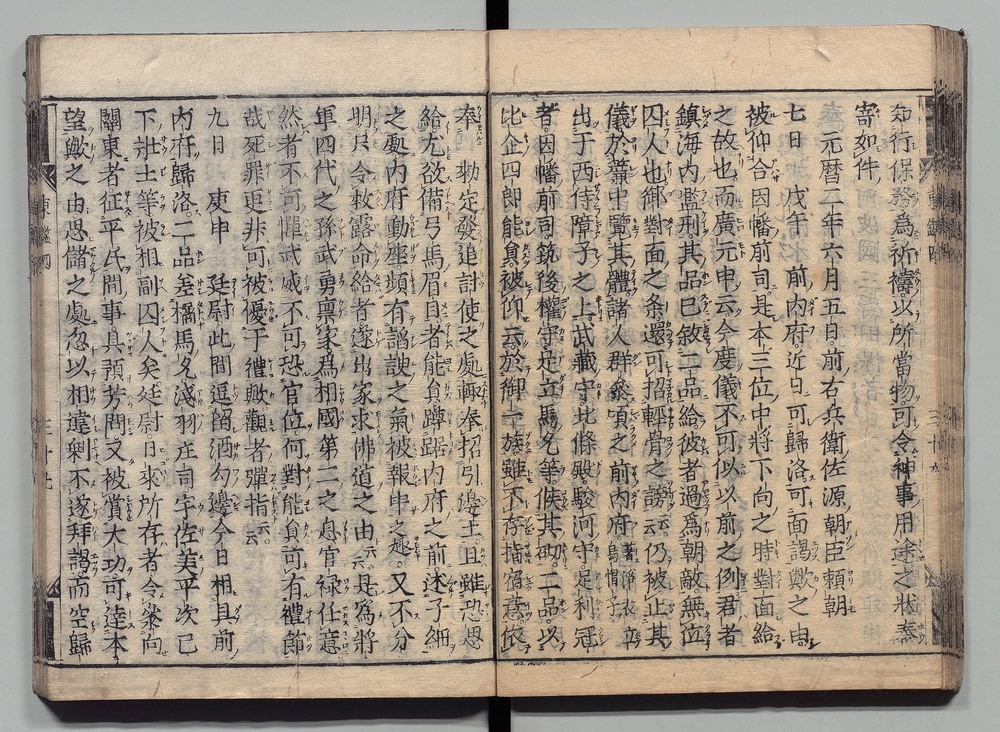 知行保務為祈禱以所當物可令神事用途之狀奉
寄如件
元暦二年六月五日前右兵衛佐源朝臣頼朝
七日 戊午 前内府近日可歸洛可面謁歟之由
被仰合因幡前司是本三位中將下向之時對面給
之故也而廣元申云今度儀不可似以前之例君者
鎮海内濫刑其品已叙二品給彼者過為朝敵無位
囚人也御對面之条還可招輕骨之謗云仍被止其
儀於簾中覽其體諸人群參頃之前内府著淨衣立烏帽子
出于西侍障子之上武藏守北條殿駿河守足利冠
者因幡前司筑後權守足立馬允等候其砌二品以
比企四郎能員被仰云於御一族雖不存指宿意依
奉 勅定發追討使之處輙奉招引邊土且雖恐思
給尤欲備弓馬眉目者能員蹲踞内府之前述子細
之處内府動座頻有諂諛之氣被報申之趣又不分
明只令救露命給者遂出家求佛道之由云是為將
軍四代之孫武勇禀家為相國第二之息官禄任意
然者不可憚武威不可恐官位何對能員可有禮節
哉死罪更非可被優于禮歟觀者彈指云
九日 庚申 廷尉此間逗留酒匂邊今日相具前
内府歸洛二品差橘馬允淺羽庄司宇佐美平次已
下壯士等被相副囚人矣廷尉日來所存者令參向
關東者征平氏間事具預芳問又被賞大功可達本
望歟之由思儲之處忽以相違剰不遂拜謁而空歸
東鑑四
三十九